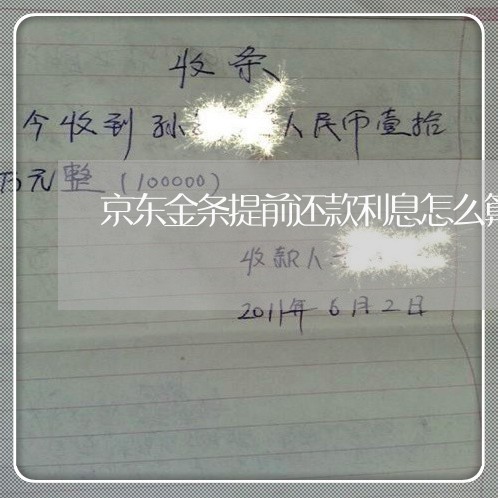 收条
今收到孙 人民币壹拾
万元整（100000）
京东金条提前还款利息怎么算
收款人
2011年6月2日